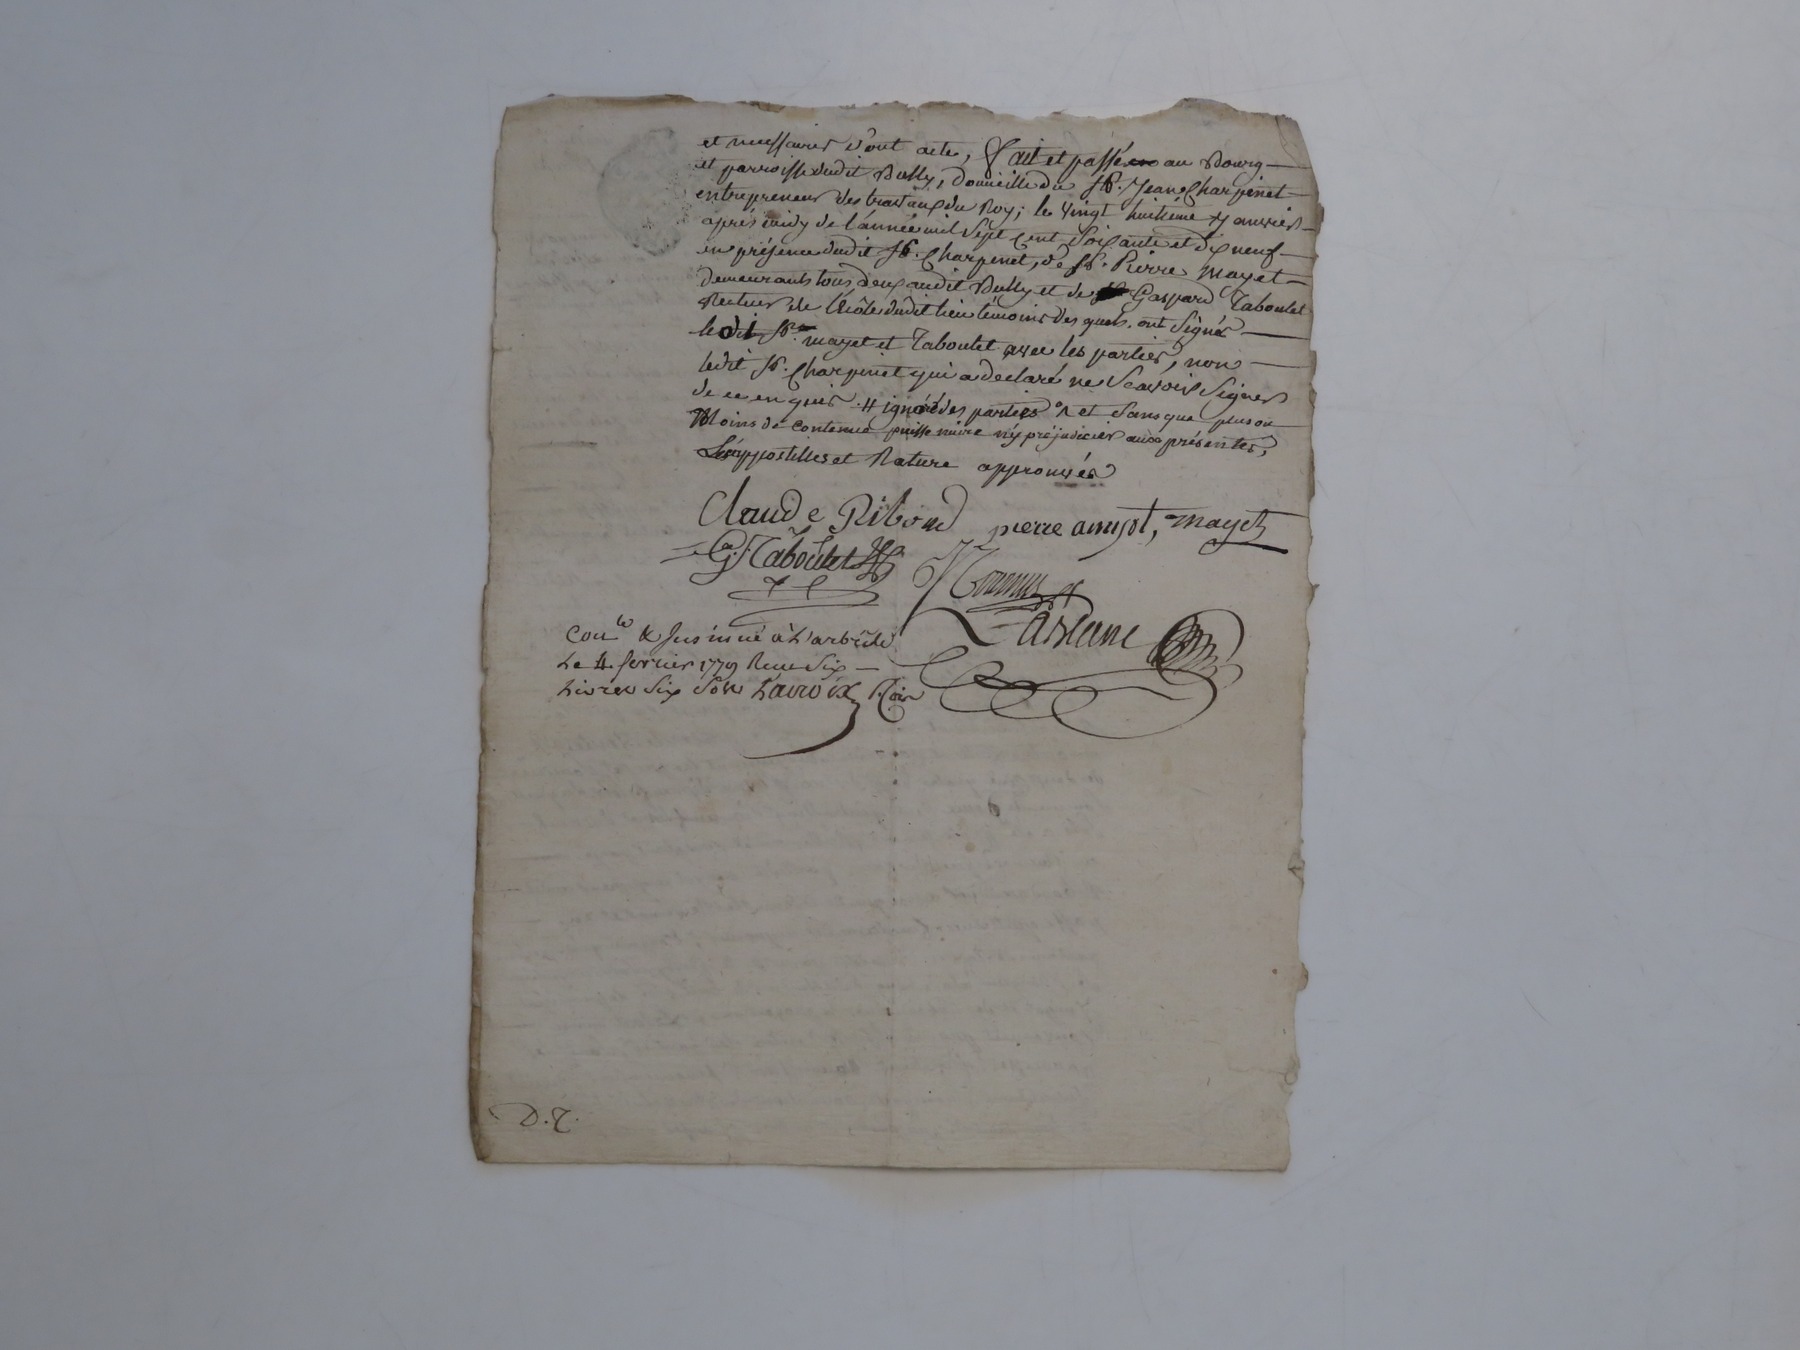 et necessaires dont acte, fait et passé au Bourg
et parroisse dudit Bully, domicille du Sr. Jean Charpenet
entrepreneur des travaux du Roy; le vingt huitiéme janvier
aprés midy de l'année mil sept cent soixante et dix neuf
en présence dudit Sr. Charpenet, de Sr. Pierre Mayet
demeurants tous deux audit Bully et de Gaspard Taboulet
Recteur de l'écôle dudit lieu témoins des quels ont signés
lesdit Srs. mayet et Taboulet avec les parties, non
ledit Sr. Charpenet qui a declaré ne scavoir signer
de ce enquis # ignoré des parties et sans que plus ou
Moins de contenue puisse nuire ny prejudicier aux présentes,
Les appostilles et Rature approuvés
Claude Ribond pierre amyot, Mayet
G. Taboulet
Lasplane
Conlé & Insinué à L'arbrêle
Le 4 fevrier 1779 Recu Six
Livres Six Sols Lacroix
D.T.